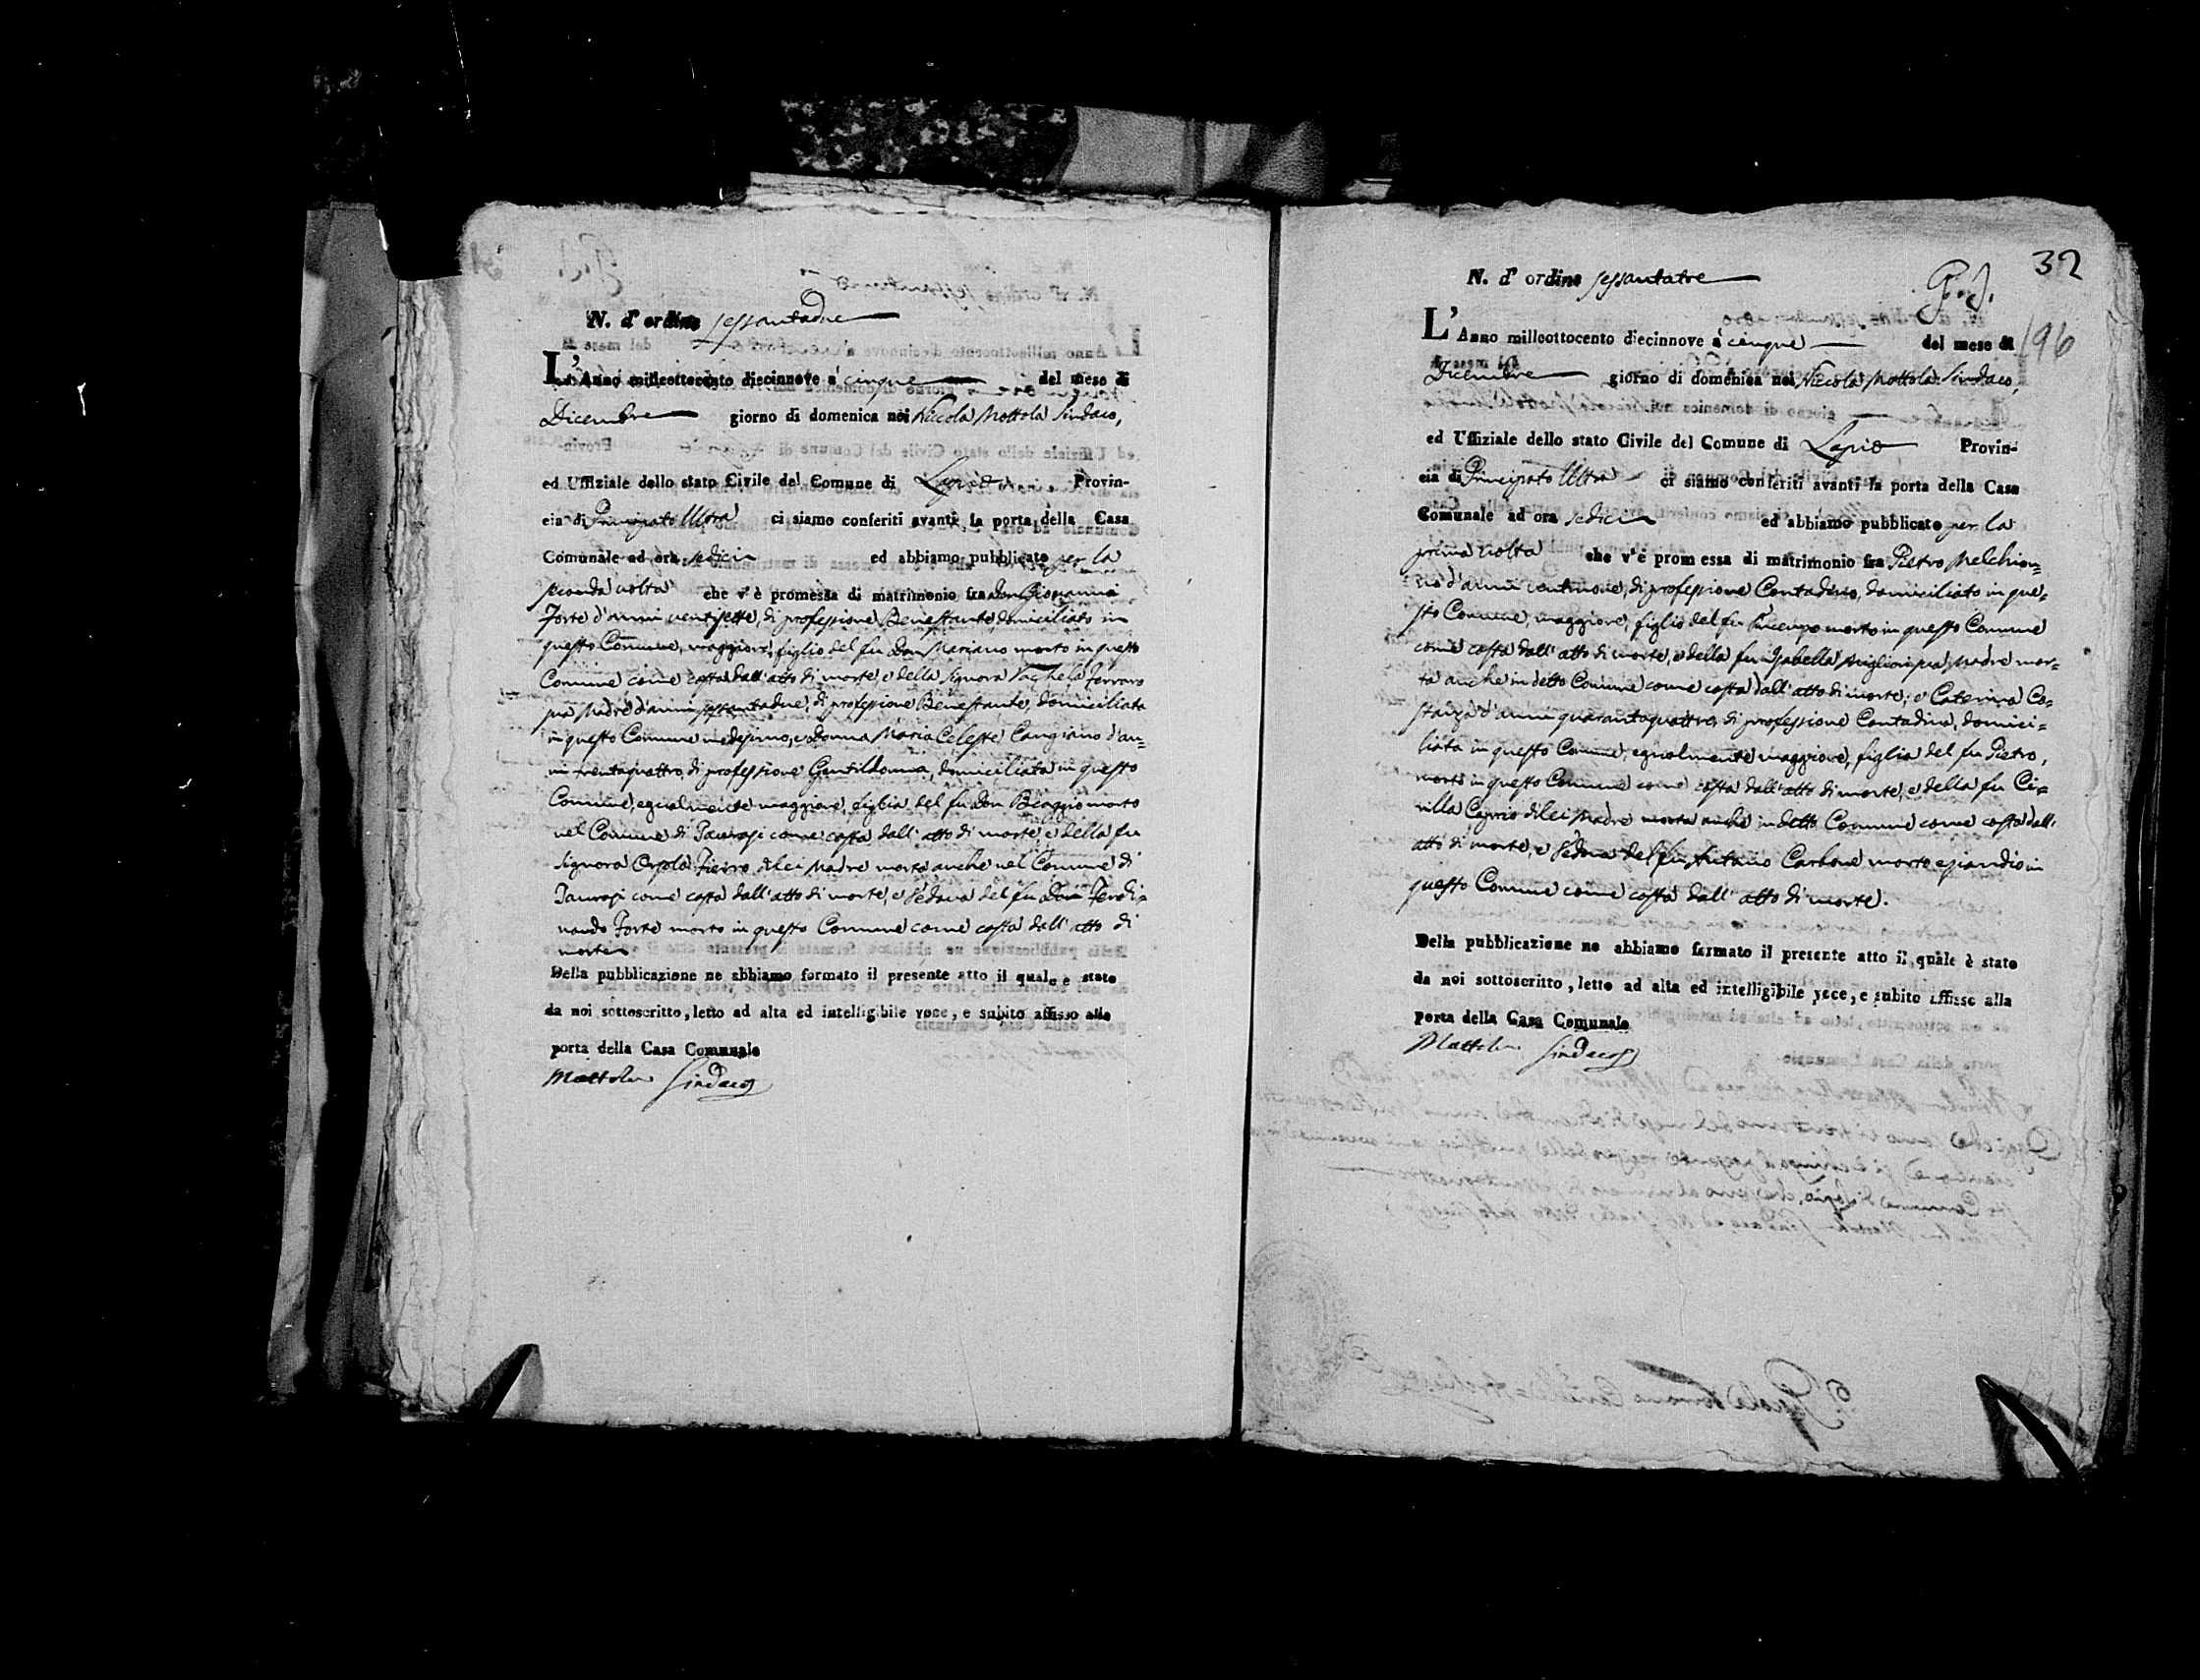 N. d'ordine sessantadue
L'Anno milleottocento diecinnove a' cinque del mese di
Dicembre giorno di domenica noi Niccola Mottola Sindaco,
ed Uffiziale dello stato Civile del Comune di Lapio Provin-
cia di Principato Ultra ci siamo conferiti avanti la porta della Casa
Comunale ad ora sedici ed abbiamo pubblicato per la
seconda volta che v'è promessa di matrimonio fra don
Forte d'anni ventisette, di professione Benestante, domiciliato in
questo Comune, maggiore, figlio del fu Don Mariano morto in questo
Comune come costa dall'atto di morte, e della Signora Ferraro
sua Madre d'anni sessantadue, di professione Benestante, domiciliata
in questo Comune medesimo, e Donna Maria Celeste Cangiano d'an-
ni trentaquattro, di professione Gentildonna, domiciliata in questo
Comune, egualmente maggiore, figlia del fu Don Biaggio morto
nel Comune di Taurasi come costa dall'atto di morte, e della fu
Signora Orsola Fierro di lei Madre morta anche nel Comune di
Taurasi come costa dall'atto di morte, e Vedova del fu Don Ferdi-
nando Forte morto in questo Comune come costa dall'atto di
morte
Della pubblicazione ne abbiamo formato il presente atto il quale e stato
da noi sottoscritto, letto ad alta ed intelligibile voce, e subito affisso alla
porta della Casa Comunale
Mottola Sindaco
32
N. d'ordine sessantatre
196
L'Anno milleottocento diecinnove a' cinque del mese di
Dicembre giorno di domenica noi Niccola Mottola Sindaco,
ed Uffiziale dello stato Civile del Comune di Lapio Provin-
cia di Principato Ultra ci siamo conferiti avanti la porta della Casa
Comunale ad ora sedici ed abbiamo pubblicato per la
prima volta che v'è promessa di matrimonio fra Pietro Melchion-
no d'anni ventinove, di professione Contadino, domiciliato in que-
sto Comune, maggiore, figlio del fu Vincenzo morto in questo Comune
come costa dall'atto di morte, e della fu Isabella sua Madre mor-
ta anche in detto Comune come costa dall'atto di morte; e Caterina Co-
stanza d'anni quarantaquattro, di professione Contadina, domici-
liata in questo Comune, egualmente maggiore, figlia del fu Pietro,
morto in questo Comune come costa dall'atto di morte, e della fu Ci-
rilla Caprio di lei Madre morta anche in detto Comune come costa dall'
atto di morte, e Vedova del fu Antonio Carbone morto eziandio in
questo Comune come costa dall'atto di morte.
Della pubblicazione ne abbiamo formato il presente atto il quale è stato
da noi sottoscritto, letto ad alta ed intelligibile voce, e subito affisso alla
porta della Casa Comunale
Mottola Sindaco